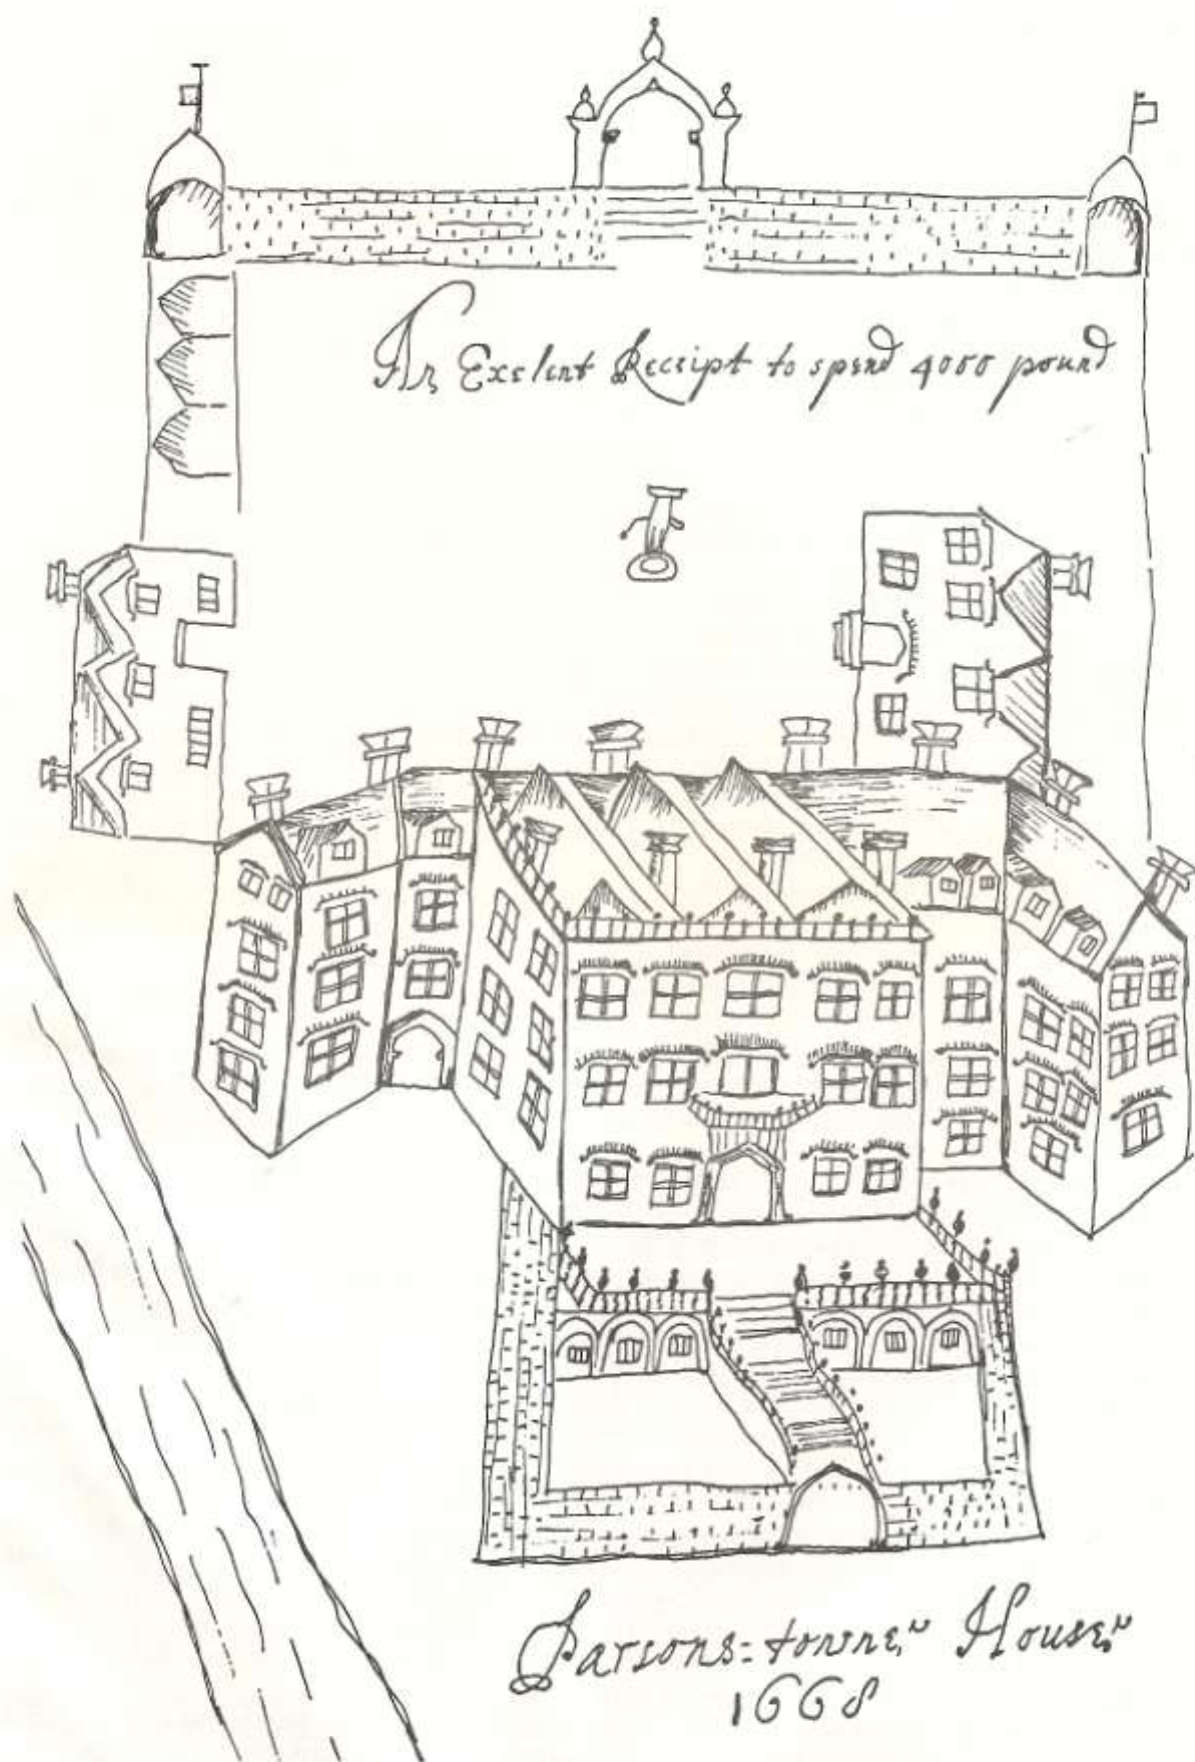 An Exelent Receipt to spend 4000 pound
Parsons=towne House
1668